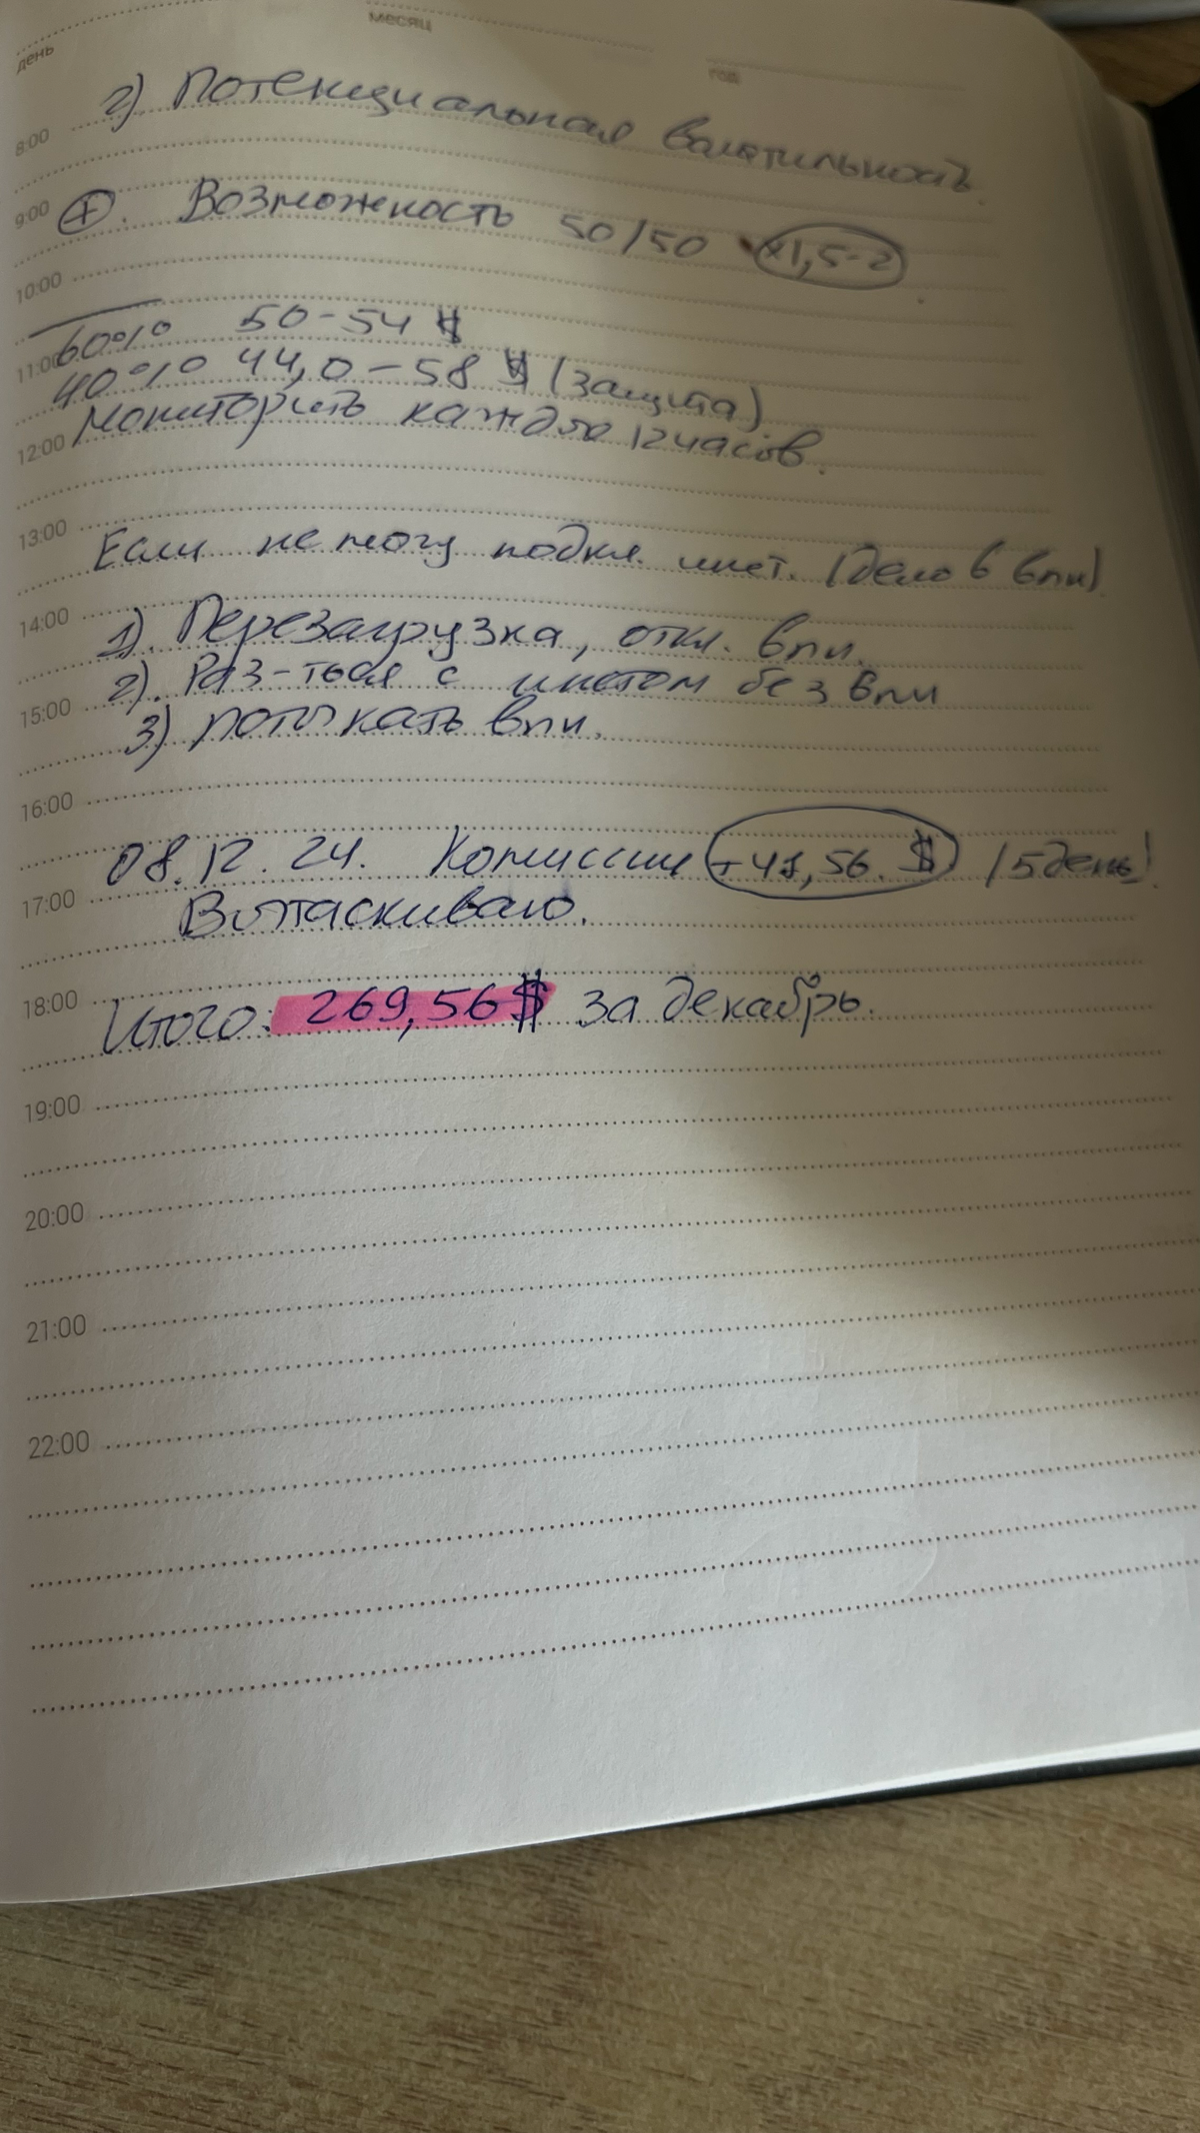 день месяц год
8:00 2) Потенциальная валатильность
9:00 + . Возможность 50/50 x1,5-2
10:00
60% 50-54 $
11:00 40% 44,0-58 $ (защита)
12:00 Мониторить каждые 12 часов.
13:00
Если не могу подкл. инет. (дело в впн)
14:00
1). Перезагрузка, откл. впн.
15:00 2). Раз-ться с инетом без впн
3) потыкать впн.
16:00
17:00 08.12.24. Комиссии +41,56. $ (5 день)
Вытаскиваю.
18:00
Итого: 269,56$ за декабрь.
19:00
20:00
21:00
22:00